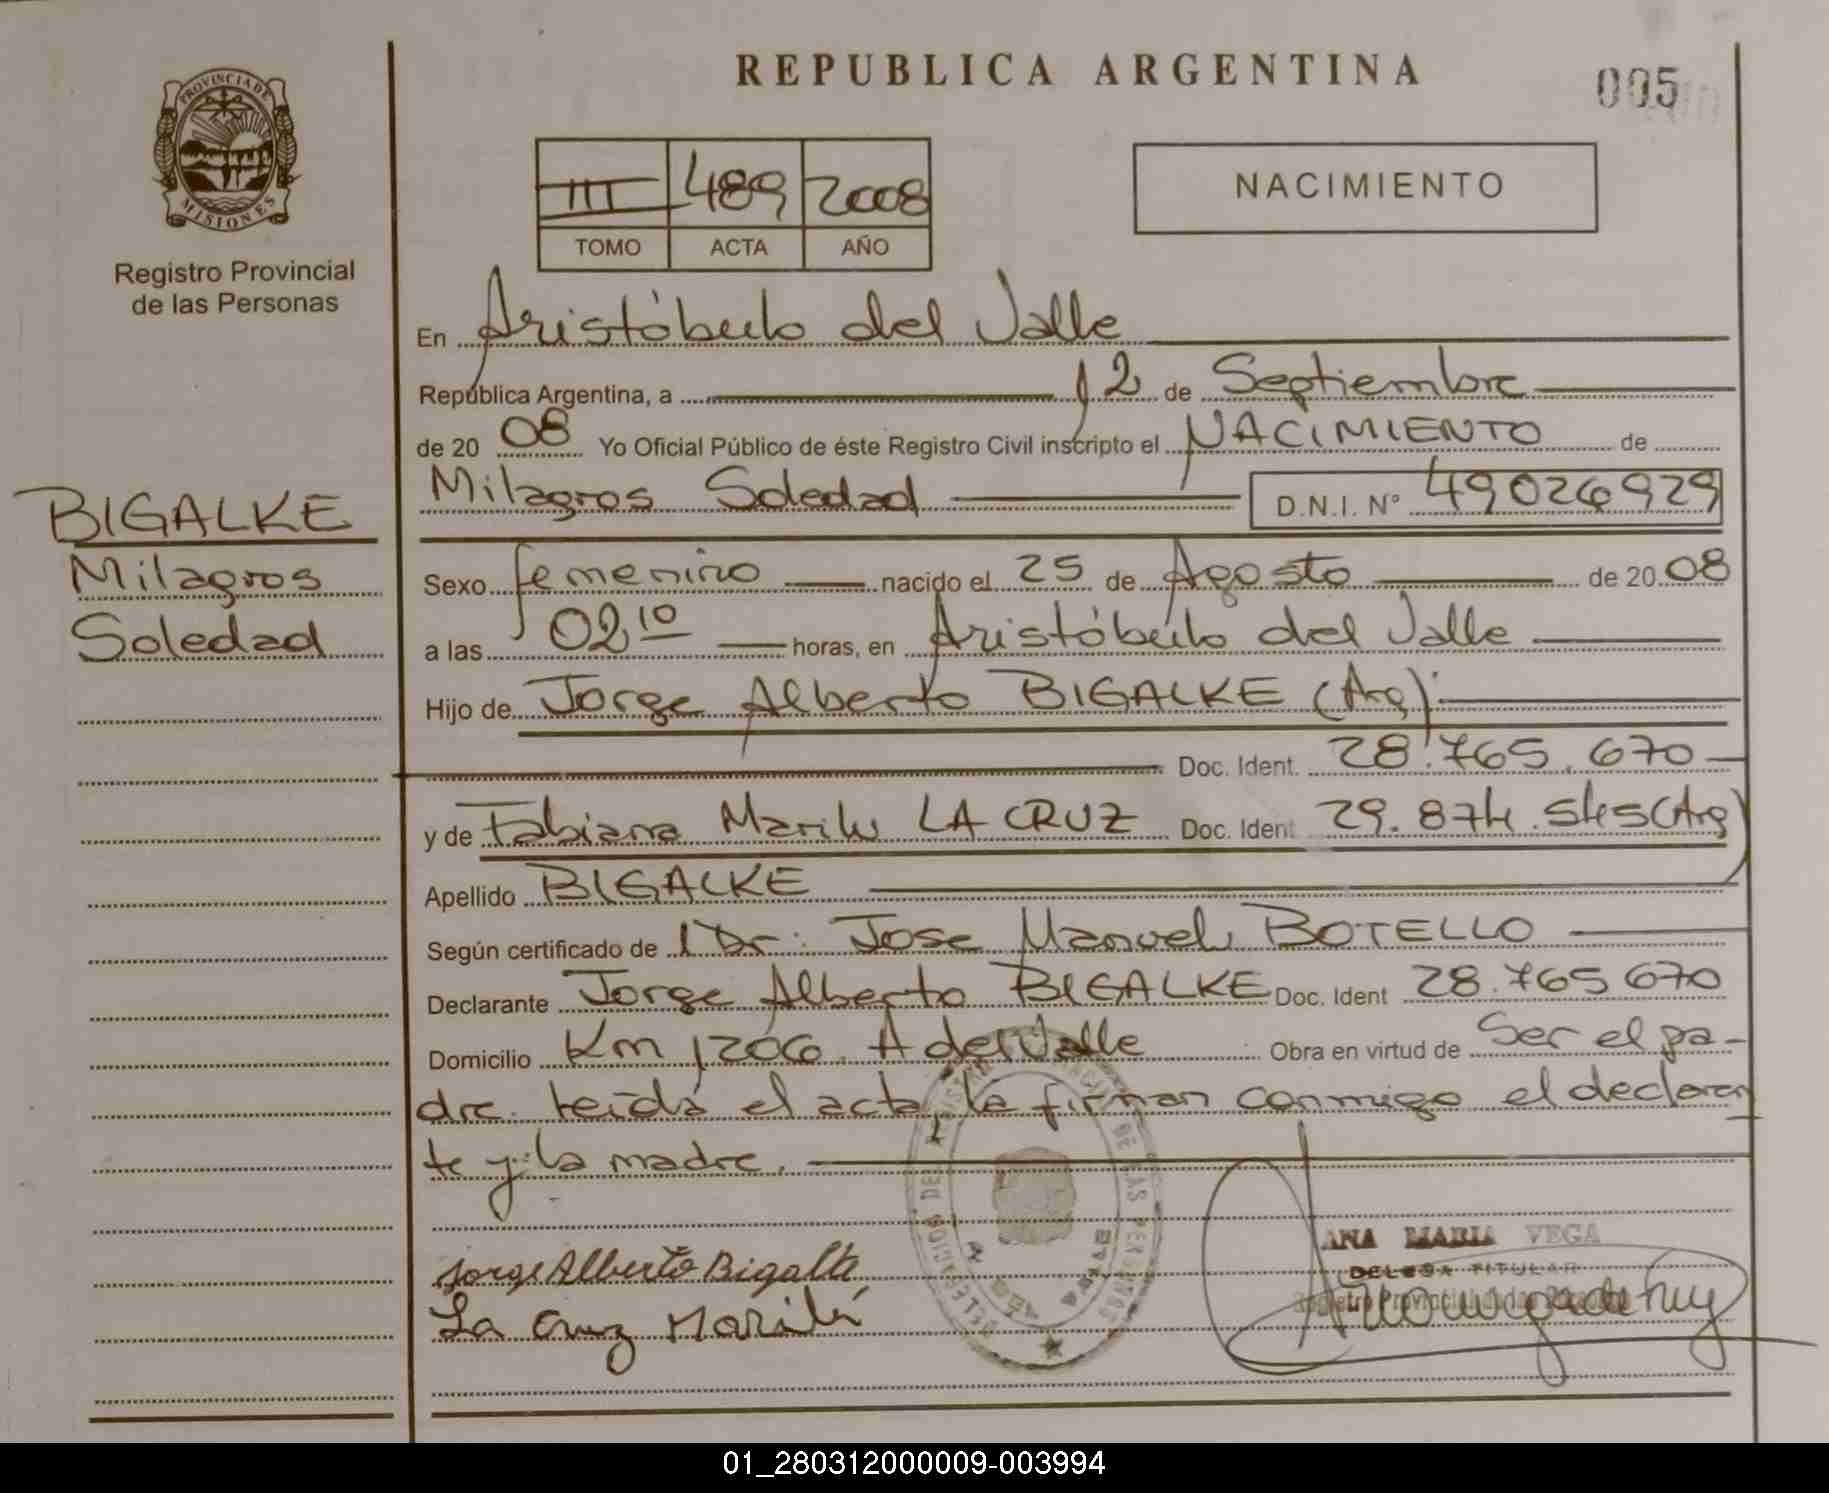 REPUBLICA ARGENTINA
005
PROVINCIA DE MISIONES
Registro Provincial
de las Personas
III 489 2008
TOMO ACTA AÑO
NACIMIENTO
En Aristóbulo del Valle
República Argentina, a 12 de Septiembre
de 2008 Yo Oficial Público de éste Registro Civil inscripto el NACIMIENTO de
Milagros Soledad D.N.I. N° 49026929
BIGALKE
Milagros
Soledad
Sexo femenino nacido el 25 de Agosto de 2008
a las 02 10 horas, en Aristóbulo del Valle
Hijo de Jorge Alberto BIGALKE (Arg)
Doc. Ident. 28.765.670
y de Fabiana Marilu LA CRUZ Doc. Ident 29.874.545 (Arg)
Apellido BIGALKE
Según certificado de Dr. Jose Manuel BOTELLO
Declarante Jorge Alberto BIGALKE Doc. Ident 28.765 670
Domicilio Km 1206. A del Valle Obra en virtud de Ser el pa-
dre. Leída el acta, la firman conmigo el declaran
te y la madre.
Jorge Alberto Bigalke
La Cruz Marilú
ANA MARIA VEGA
DELEGADA TITULAR
Registro Provincial de las Personas
01_280312000009-003994